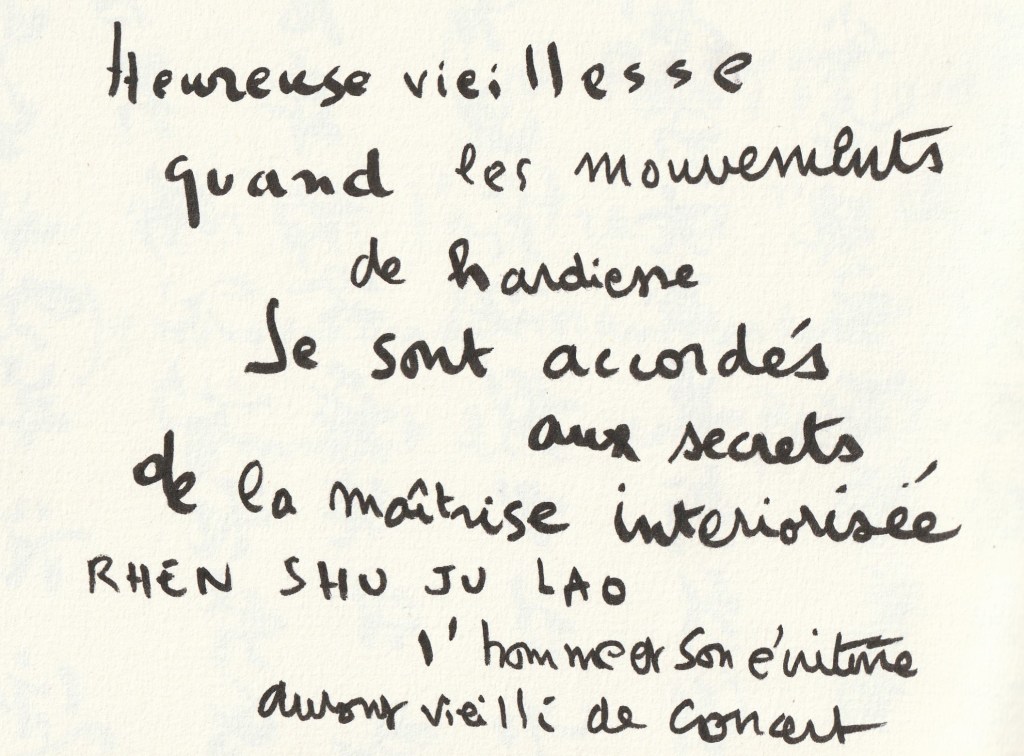 Heureuse vieillesse
quand les mouvements
de hardiesse
Se sont accordés
aux secrets
de la maîtrise interiorisée
RHEN SHU JU LAO
l'homme et son écriture
auront vieilli de concert